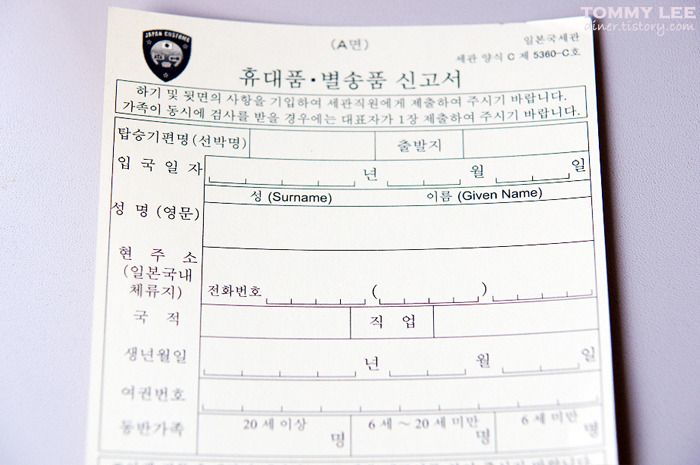 TOMMY LEE
diner.tistory.com
JAPAN CUSTOMS
(A면)
일본국세관
세관 양식 C 제 5360-C호
휴대품·별송품 신고서
하기 및 뒷면의 사항을 기입하여 세관직원에게 제출하여 주시기 바랍니다.
가족이 동시에 검사를 받을 경우에는 대표자가 1장 제출하여 주시기 바랍니다.
탑승기편명(선박명) 출발지
입국일자 년 월 일
성 (Surname) 이름 (Given Name)
성 명 (영문)
현 주 소
(일본국내
체류지) 전화번호 ( )
국 적 직 업
생년월일 년 월 일
여권번호
동반가족 20세이상 명 6세~20세미만 명 6세미만 명